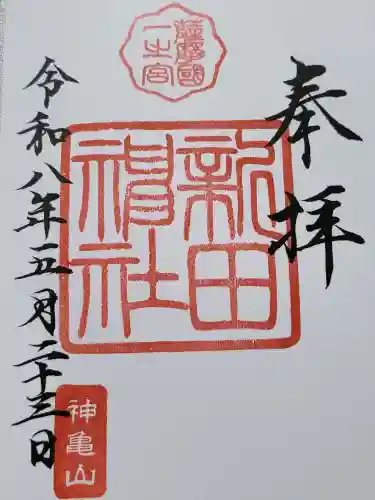 奉拝
薩摩國一之宮
新田神社
令和八年五月二十三日
神亀山